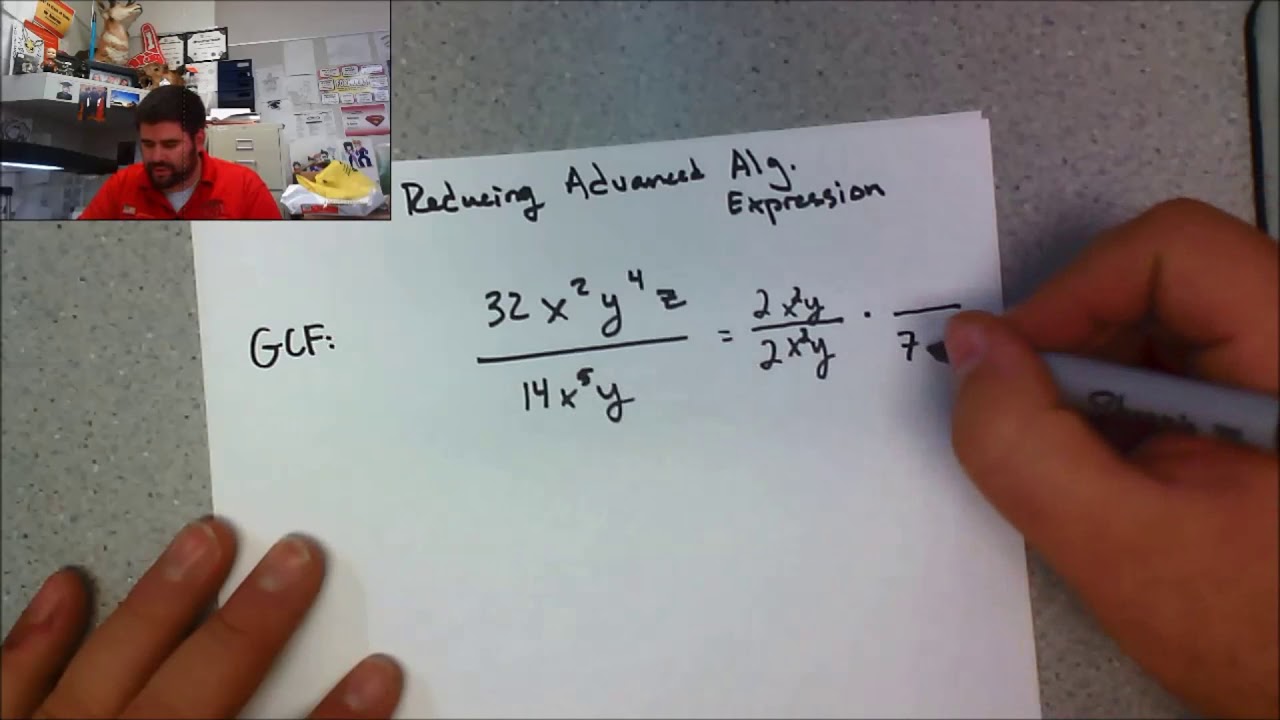 Reducing Advanced Alg.
Expression
GCF:
32x²y⁴z / 14x⁵y = 2x²y / 2x²y · / 7